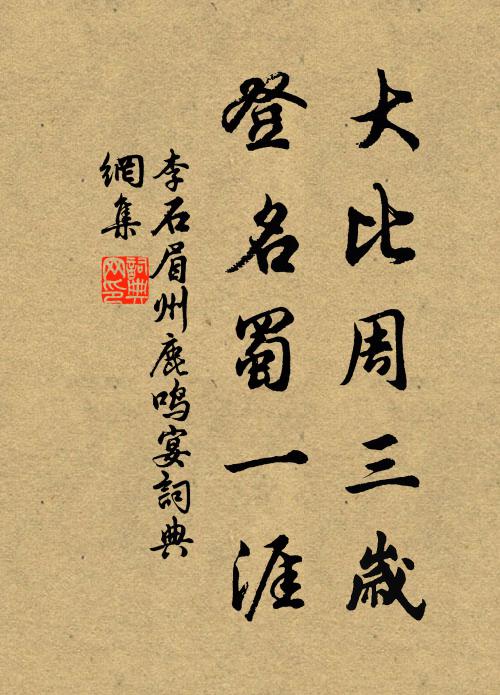 大比周三歲
登名蜀一涯
李石眉州鹿鳴宴詞典
網集
詞典
网印